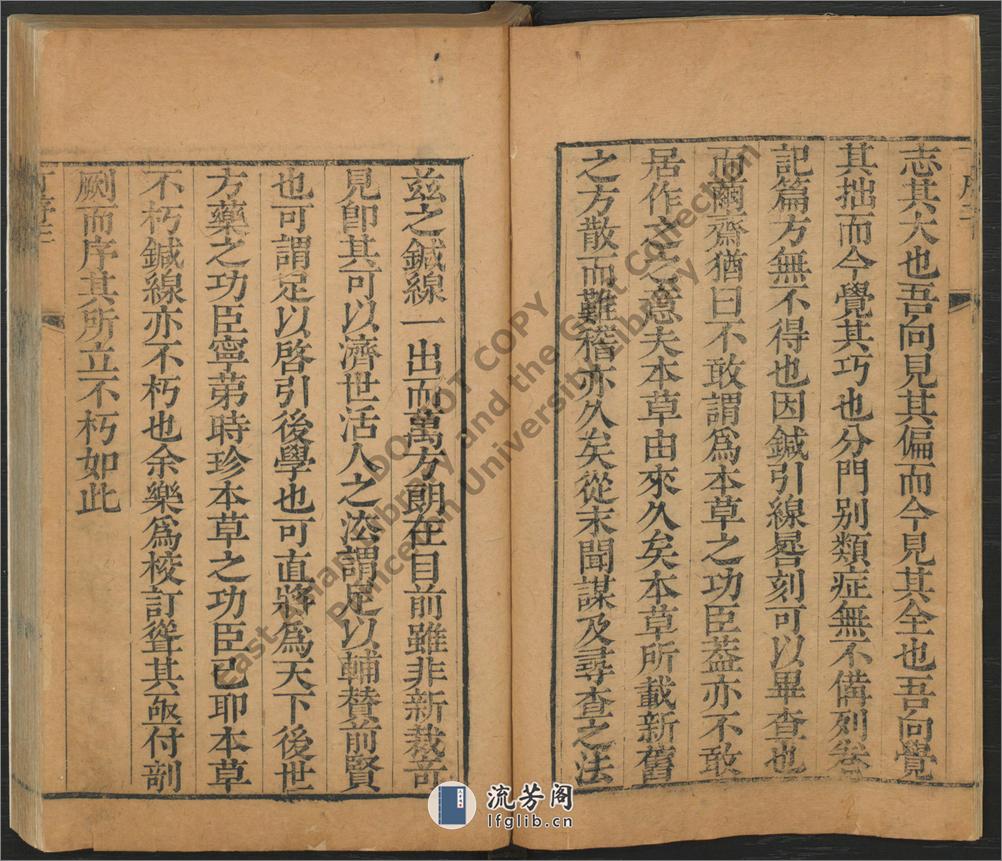 志其大也吾向見其偏而今見其全也吾向覺
其拙而今覺其巧也分門别類症無不備列卷
記篇方無不得也因鍼引線晷刻可以畢查也
而繭齋猶曰不敢謂爲本草之功臣葢亦不敢
居作之之意夫本草由來久矣本草所載新舊
之方散而難稽亦久矣從未聞謀及尋查之法
兹之鍼線一出而萬方朗在目前雖非新裁竒
見卽其可以濟世活人之法謂足以輔賛前賢
也可謂足以啓引後學也可直將爲天下後世
方藥之功臣寧第時珍本草之功臣已耶本草
不朽鍼線亦不朽也余樂爲校訂聳其亟付剞
劂而序其所立不朽如此
DO NOT COPY
East Asian Library and the Gest Collection
Princeton University Library
流芳阁
lfglib.cn